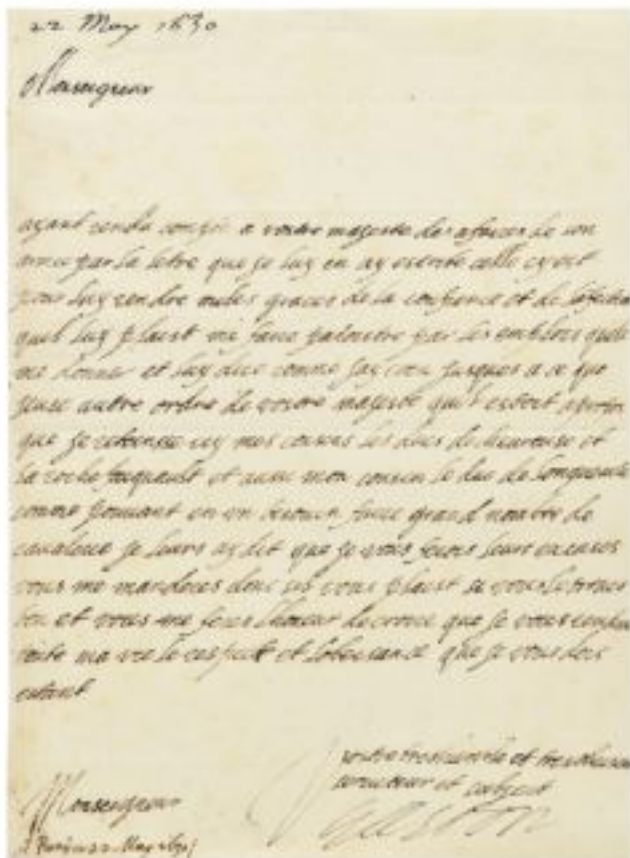 22 May 1630
Monseigneur
ayant rendu compte a vostre majeste des afaires de son
armee par la letre que je luy en ay escrite celle cy est
pour luy rendre miles graces de la confiance et de
quil luy plaist me faire paroistre par les emplois quele
me donner et luy dire comme jay creu jusques a ce que
jeuse autre ordre de vostre majeste quil estoit
que je retiensse icy mes cousins les ducs de et
la roche et ausi mon cousin le duc de longueville
comme pouvant en un besoin faire grand nombre de
cavalerie je leurs ay dit que je vous ferois leurs excuses
vous me manderes donc sil vous plaist si vous le trouves
bon et vous me feres lhoneur de croire que je vous
toute ma vie le respect et lobeissance que je vous dois
estant
vostre tres humble et tres obeissant
serviteur et subject
Gaston
Monseigneur
A Paris 22 May